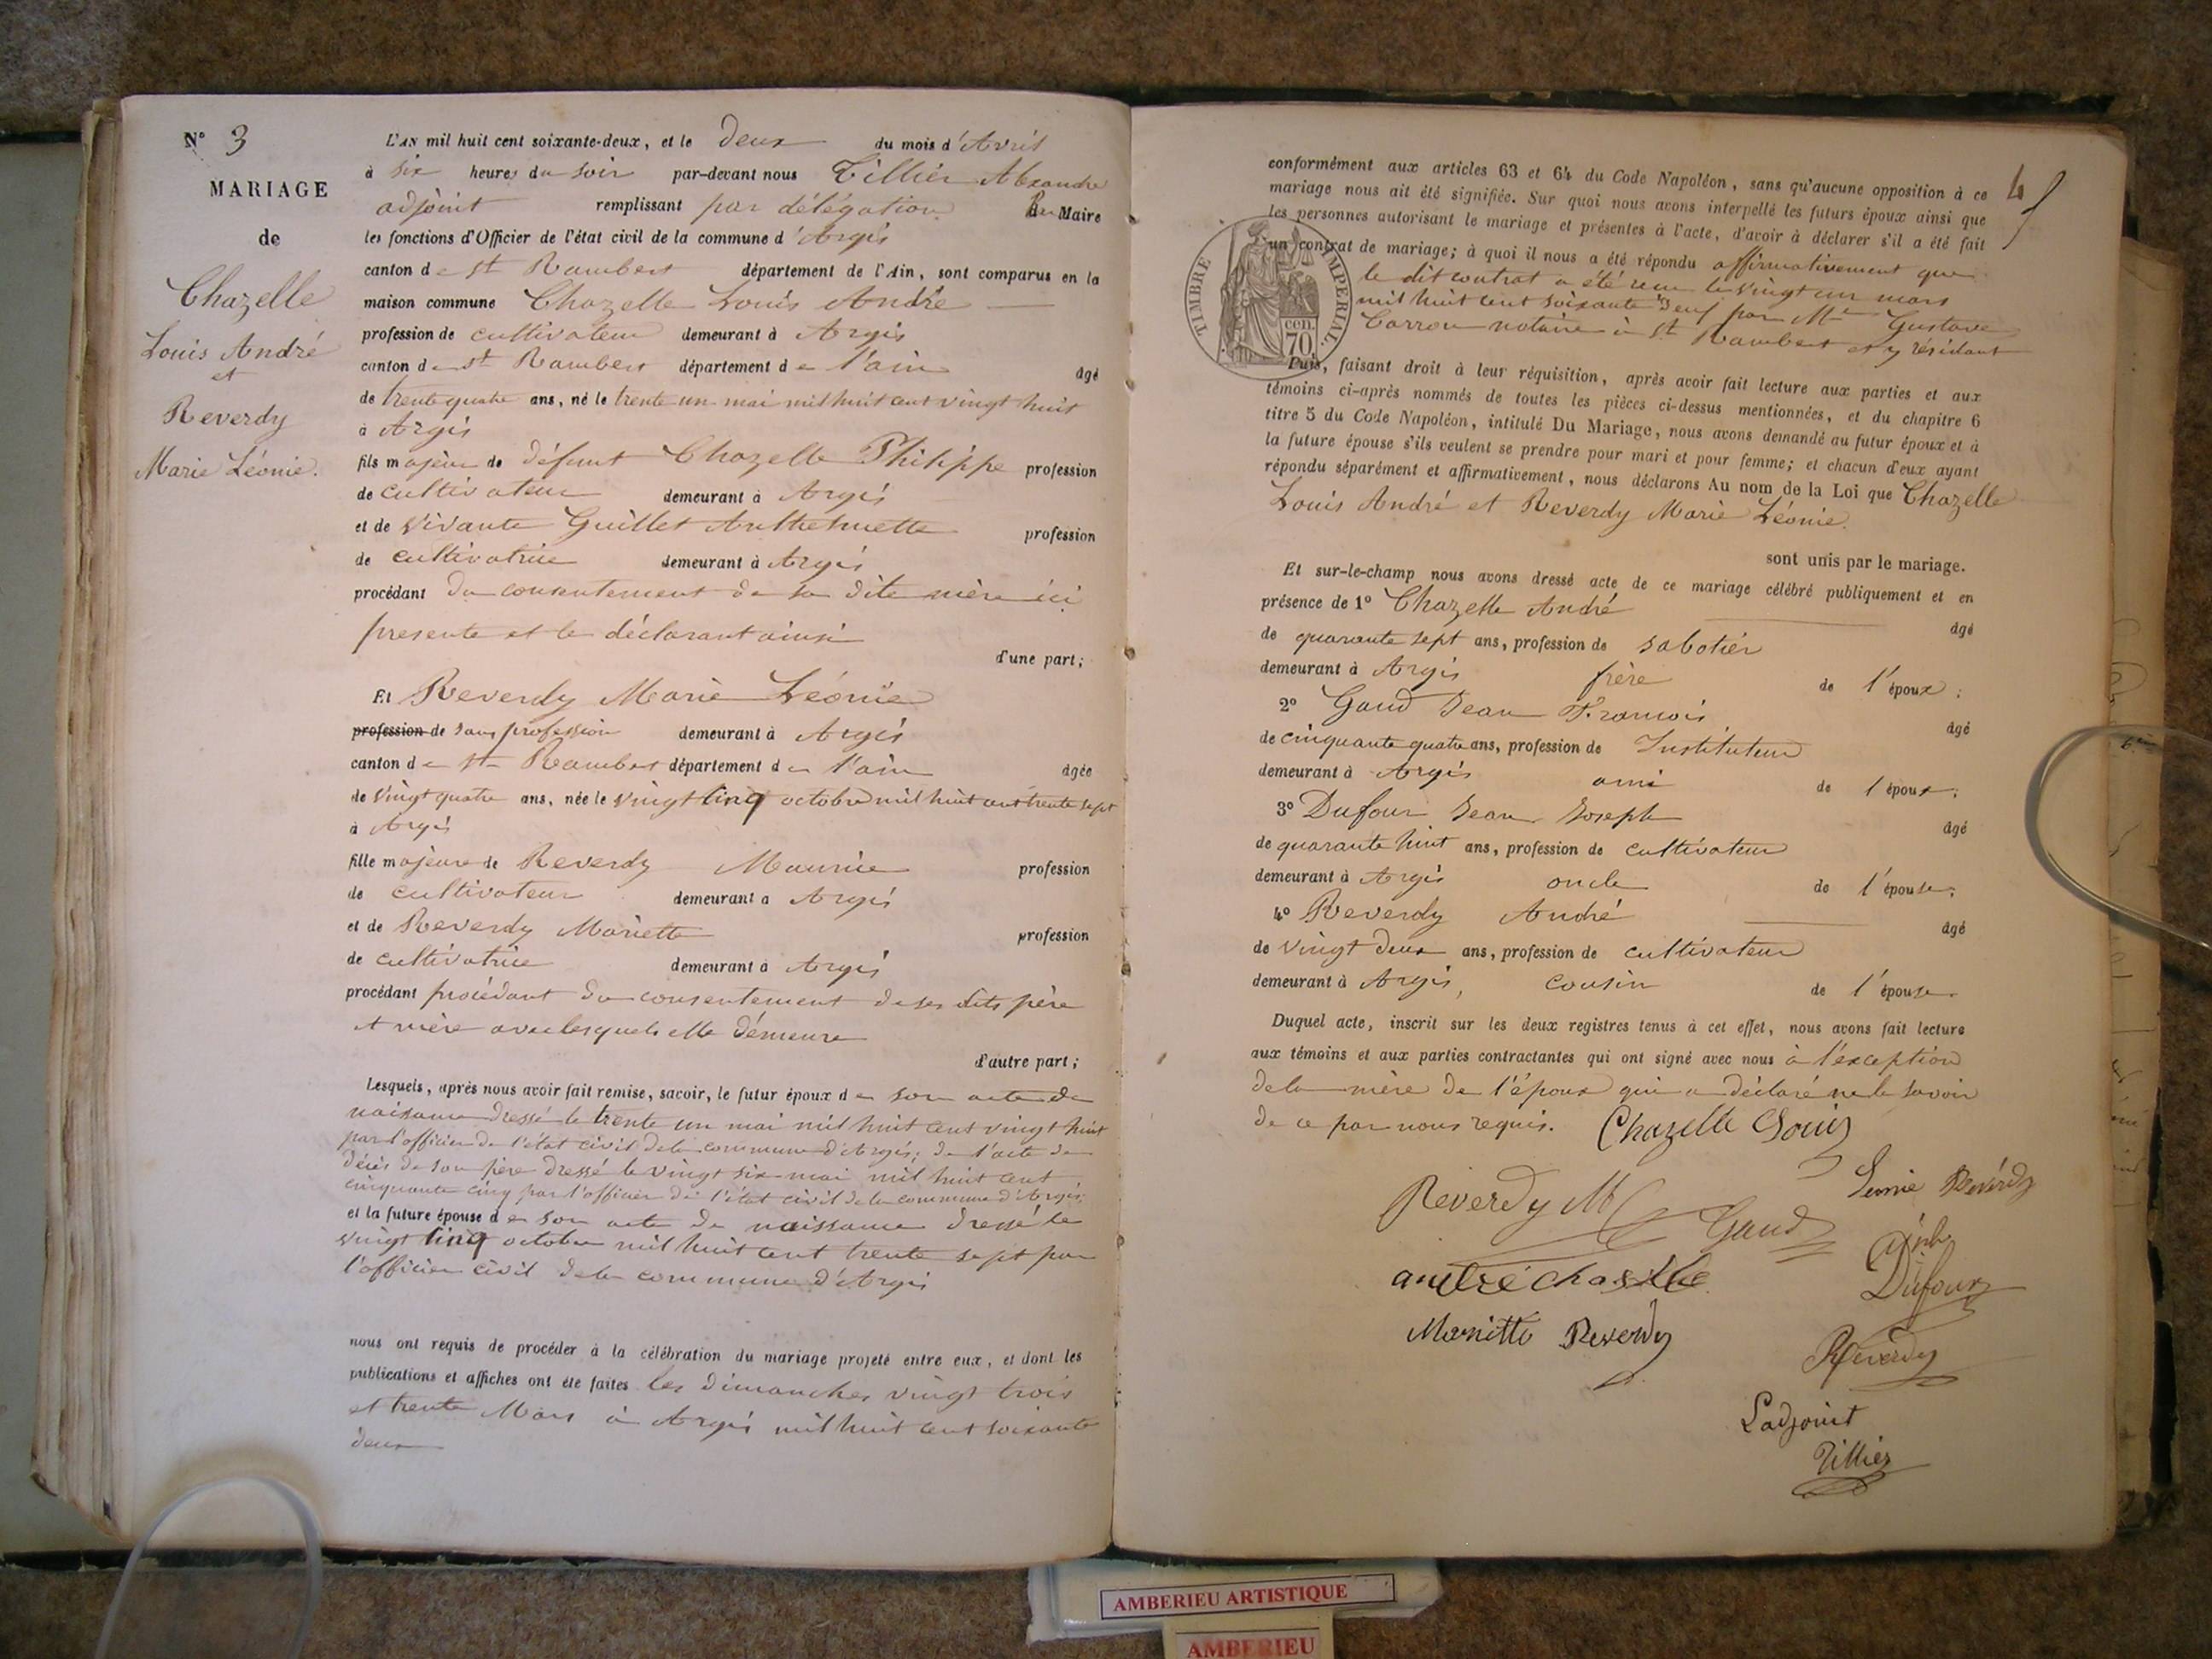 N° 3
MARIAGE
de
Chazelle
Louis André
et
Reverdy
Marie Léonie.
L'AN mil huit cent soixante-deux, et le deux du mois d'Avril
à six heures du soir par-devant nous Tillier Alexandre
adjoint remplissant par délégation du Maire
les fonctions d'Officier de l'état civil de la commune d'Argis
canton de st Rambert département de l'Ain, sont comparus en la
maison commune Chazelle Louis André
profession de cultivateur demeurant à Argis
canton de st Rambert département de l'ain âgé
de trente quatre ans, né le trente un mai mil huit cent vingt huit
à Argis
fils majeur de défunt Chazelle Philippe profession
de cultivateur demeurant à Argis
et de vivante Guillet Anthelmette profession
de cultivatrice demeurant à Argis
procédant du consentement de sa dite mère ici
presente et le déclarant ainsi
d'une part;
Et Reverdy Marie Léonie
profession de sans profession demeurant à Argis
canton de st Rambert département de l'ain âgée
de vingt quatre ans, née le vingt cinq octobre mil huit cent trente sept
à Argis
fille majeure de Reverdy Maurice profession
de cultivateur demeurant à Argis
et de Reverdy Mariette profession
de cultivatrice demeurant à Argis
procédant procédant du consentement de ses dits père
et mère avec lesquels elle demeure
d'autre part;
Lesquels, après nous avoir fait remise, savoir, le futur époux de son acte de
naissance dressé le trente un mai mil huit cent vingt huit
par l'officier de l'état civil de la commune d'Argis; de l'acte de
décès de son père dressé le vingt six mai mil huit cent
cinquante cinq par l'officier de l'état civil de la commune d'Argis;
et la future épouse de son acte de naissance dressé le
vingt cinq octobre mil huit cent trente sept par
l'officier civil de la commune d'Argis
nous ont requis de procéder à la célébration du mariage projeté entre eux, et dont les
publications et affiches ont été faites les dimanches vingt trois
et trente Mars à Argis mil huit cent soixante
deux
4
conformément aux articles 63 et 64 du Code Napoléon, sans qu'aucune opposition à ce
mariage nous ait été signifiée. Sur quoi nous avons interpellé les futurs époux ainsi que
les personnes autorisant le mariage et présentes à l'acte, d'avoir à déclarer s'il a été fait
un contrat de mariage; à quoi il nous a été répondu affirmativement que
le dit contrat a été reçu le vingt un mars
mil huit cent soixante deux par Me Gustave
Carron notaire à St Rambert et y résidant
TIMBRE IMPERIAL
70 cen.
Puis, faisant droit à leur réquisition, après avoir fait lecture aux parties et aux
témoins ci-après nommés de toutes les pièces ci-dessus mentionnées, et du chapitre 6
titre 5 du Code Napoléon, intitulé Du Mariage, nous avons demandé au futur époux et à
la future épouse s'ils veulent se prendre pour mari et pour femme; et chacun d'eux ayant
répondu séparément et affirmativement, nous déclarons Au nom de la Loi que Chazelle
Louis André et Reverdy Marie Léonie.
sont unis par le mariage.
Et sur-le-champ nous avons dressé acte de ce mariage célébré publiquement et en
présence de 1° Chazelle André âgé
de quarante sept ans, profession de sabotier
demeurant à Argis frère de l'époux;
2° Gaud Jean François âgé
de cinquante quatre ans, profession de Instituteur
demeurant à Argis ami de l'époux;
3° Dufour Jean Joseph âgé
de quarante huit ans, profession de cultivateur
demeurant à Argis oncle de l'épouse;
4° Reverdy André âgé
de vingt deux ans, profession de cultivateur
demeurant à Argis, cousin de l'épouse.
Duquel acte, inscrit sur les deux registres tenus à cet effet, nous avons fait lecture
aux témoins et aux parties contractantes qui ont signé avec nous à l'exception
de la mère de l'époux qui a déclaré ne le savoir
de ce par nous requis. Chazelle Louis
Reverdy M Gaud Léonie Reverdy
andré chazelle
Dufour
Mariette Reverdy
Reverdy
L'adjoint
Tillier
AMBERIEU ARTISTIQUE
AMBERIEU